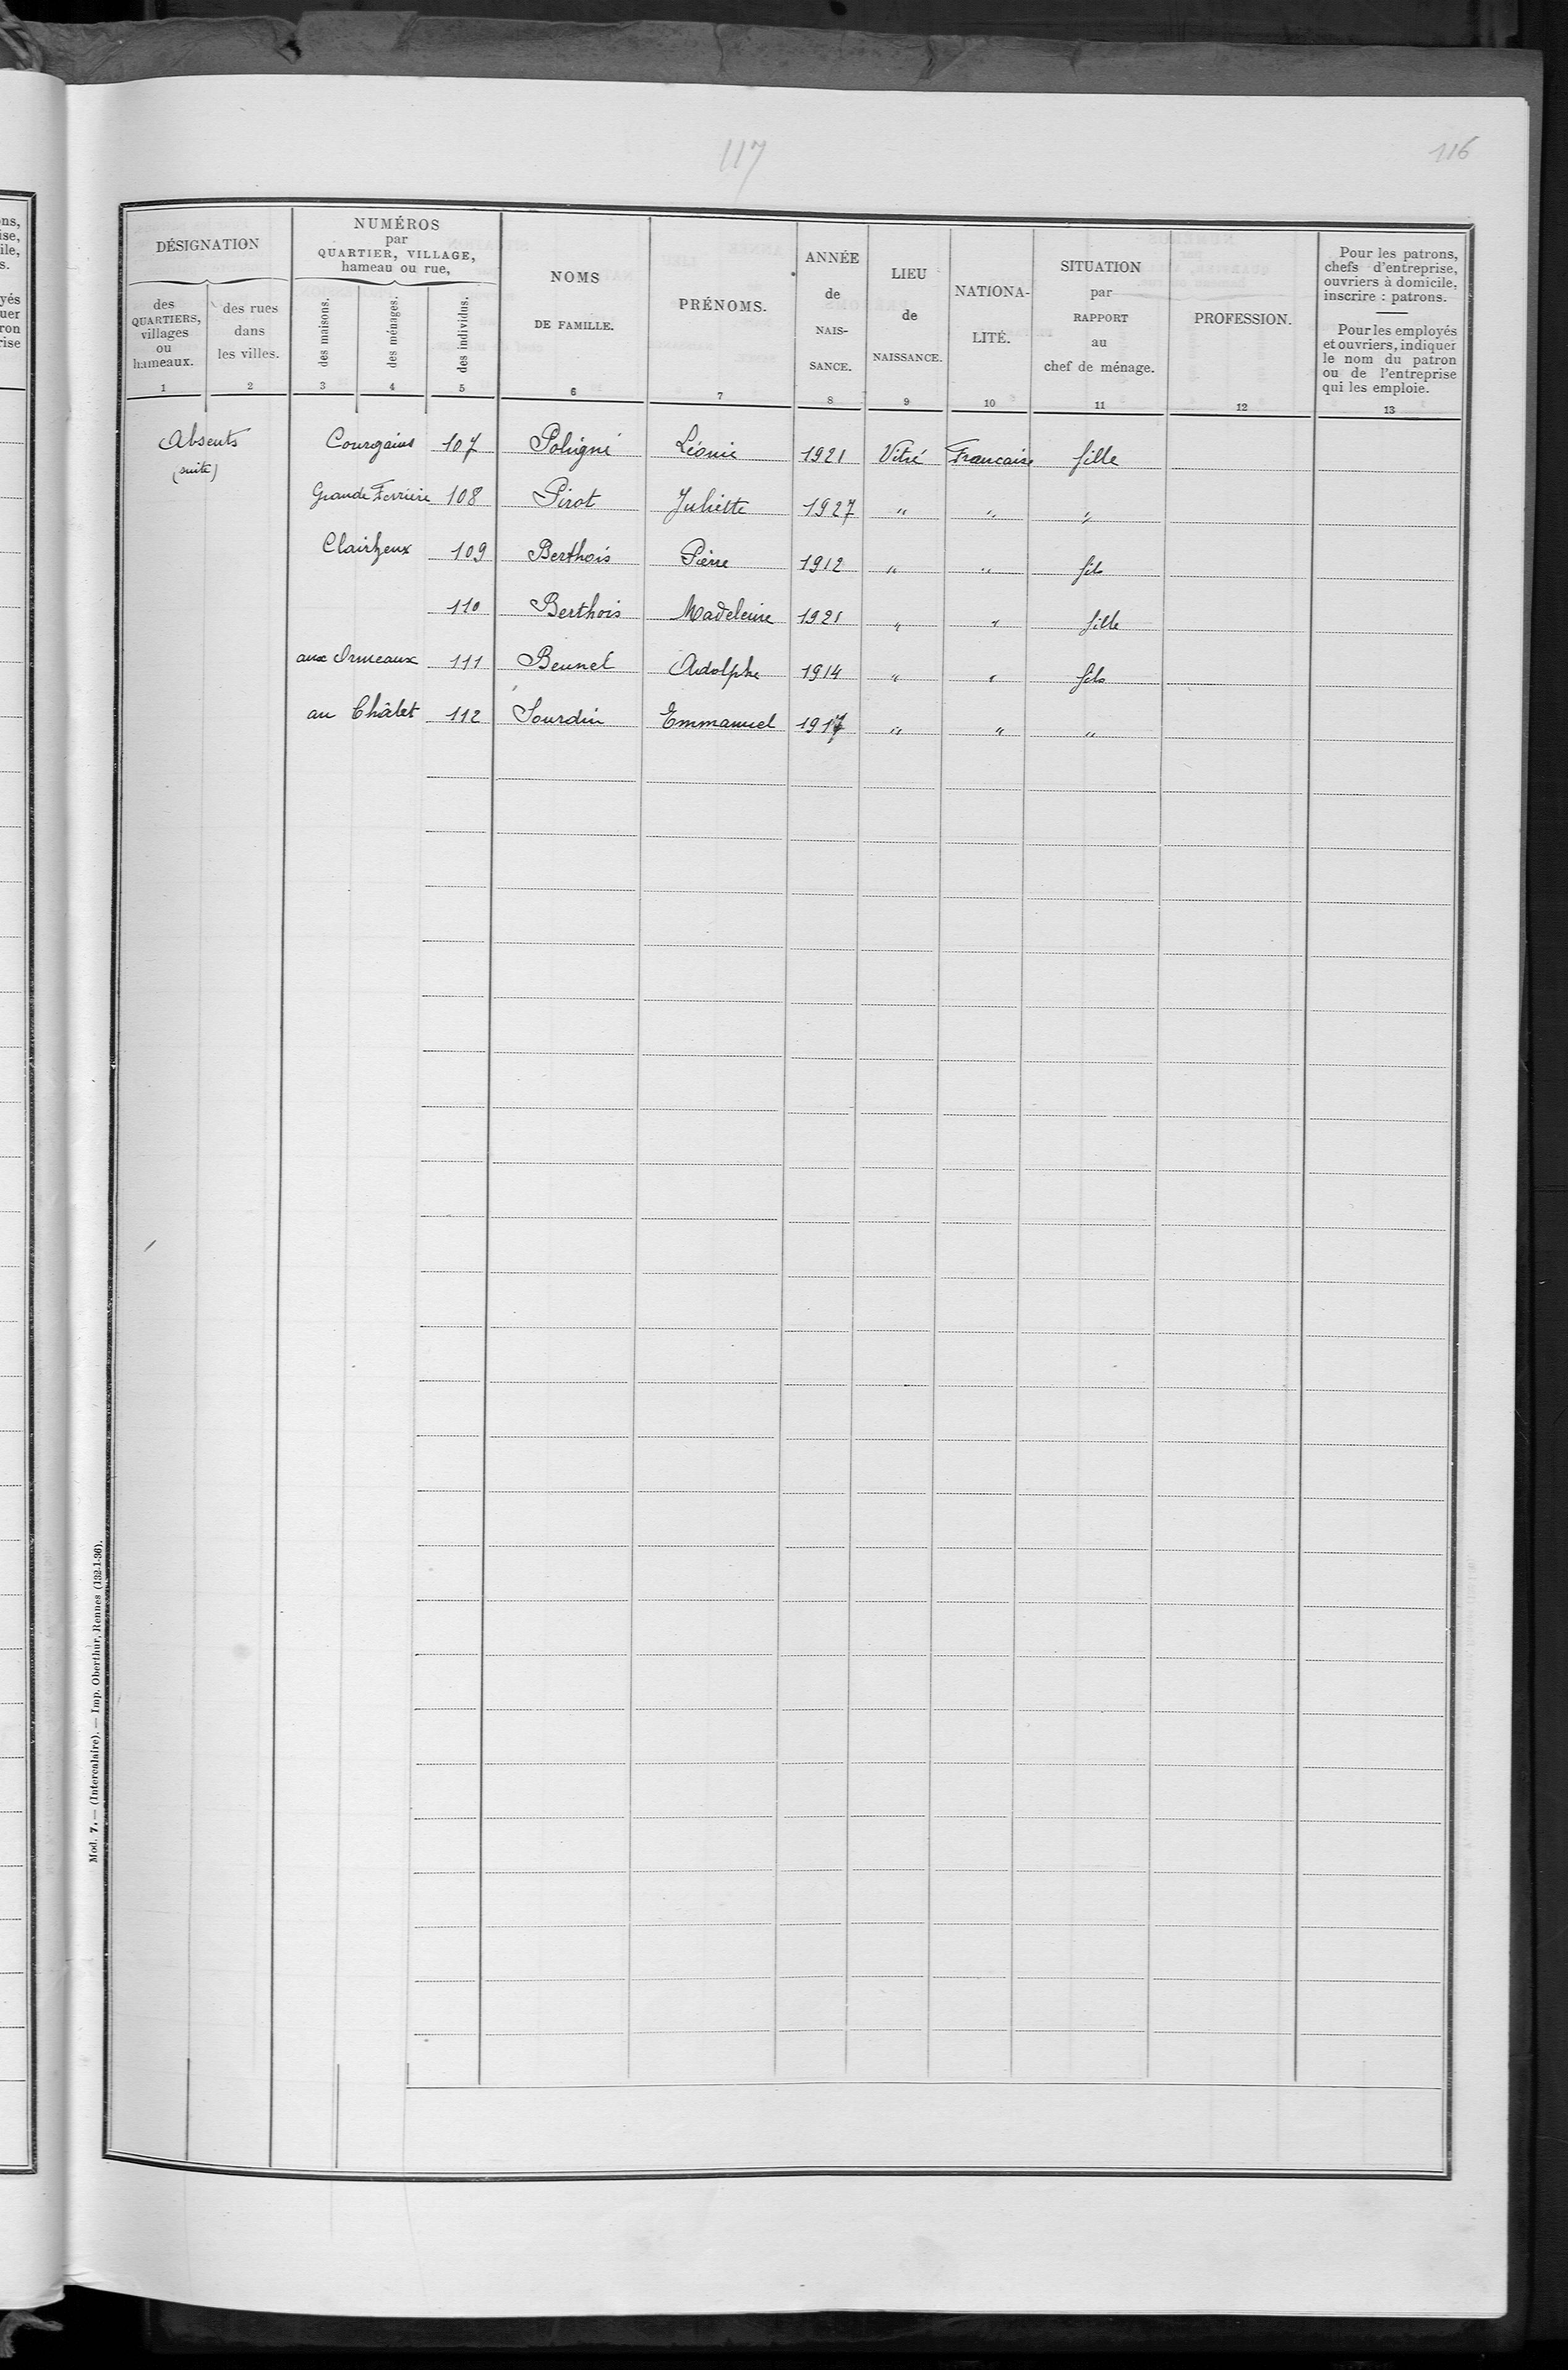 117
116
DÉSIGNATION
des QUARTIERS, villages ou hameaux.
des rues dans les villes.
NUMÉROS par QUARTIER, VILLAGE, hameau ou rue,
des maisons.
des ménages.
des individus.
NOMS DE FAMILLE.
PRÉNOMS.
ANNÉE de NAIS-SANCE.
LIEU de NAISSANCE.
NATIONA-LITÉ.
SITUATION par RAPPORT au chef de ménage.
PROFESSION.
Pour les patrons, chefs d'entreprise, ouvriers à domicile, inscrire : patrons.
Pour les employés et ouvriers, indiquer le nom du patron ou de l'entreprise qui les emploie.
1 2 3 4 5 6 7 8 9 10 11 12 13
Absents Courgains 107 Poligné Léonie 1921 Vitré Francaise fille
(suite)
Grande Ferrière 108 Pirot Juliette 1927 " " "
109 Berthois Pierre 1912 " " fils
110 Berthois Madeleine 1921 " " fille
aux Ormeaux 111 Adolphe 1914 " " fils
au Châlet 112 Sourdin Emmanuel 1917 " " "
Mod. 7. — (Intercalaire). — Imp. Oberthur, Rennes (132-1-36).